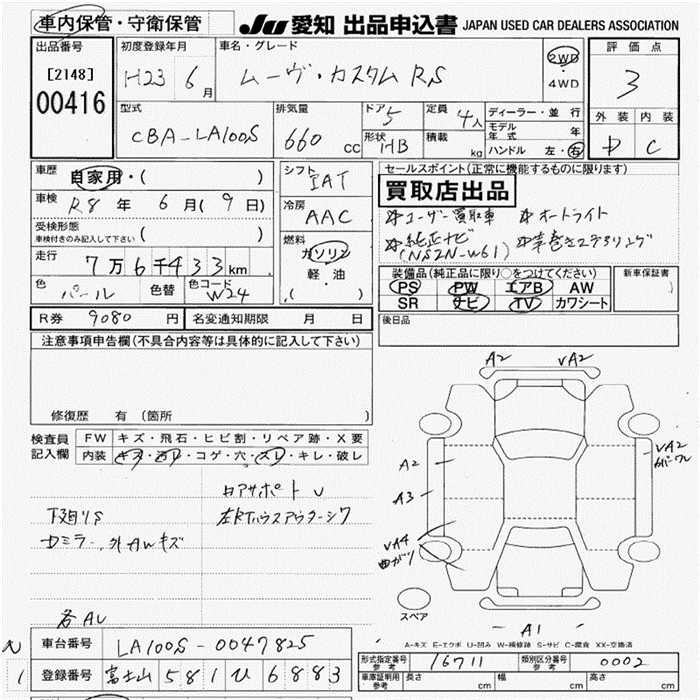 車内保管・守衛保管 JU 愛知 出品申込書 JAPAN USED CAR DEALERS ASSOCIATION
出品番号 初度登録年月 車名・グレード 評価点
[2148] H23 6月 ムーヴ・カスタム RS 2WD・4WD 3
00416 型式 排気量 ドア 定員 ディーラー・並行 外装 内装
CBA-LA100S 660cc 5 4人 モデル年式 年 D C
形状 HB 積載 kg ハンドル 左・右
車歴 自家用・( ) シフト セールスポイント(正常に機能するものに限ります)
IAT 買取店出品
車検 R8年 6月(9日) 冷房 AAC ☆ユーザー買取車 ☆オートライト
受検形態 ☆純正ナビ ☆革巻きステアリング
車検付きのみ記入して下さい( ) 燃料 (NSZN-W61)
走行 7万6千433km ガソリン 装備品(純正品に限り○をつけてください) 新車保証書
軽・油 PS PW エアB AW ( )
色 パール 色替 色コード W24 ( ) SR ナビ TV カワシート
R券 9080円 名変通知期限 月 日 後日品
注意事項申告欄(不具合内容等は具体的に記入して下さい)
A2 VA2
修復歴 有(箇所 )
検査員記入欄 FW キズ・飛石・ヒビ割・リペア跡・X要
内装 キズ・汚レ・コゲ・穴・スレ・キレ・破レ
VA2
A2
A3
下廻りS
カミラー、外AWキズ
VA4
曲がり
スペア
各AU A1
A-キズ E-エクボ U-凹み W-補修跡 S-サビ C-腐食 XX-交換済
N 車台番号 LA100S-0047825
1 登録番号 富士山 581 ひ 6883
形式指定番号 参考 16711 類別区分番号 参考 0002
車庫証明用 参考 長さ cm 幅 cm 高さ cm